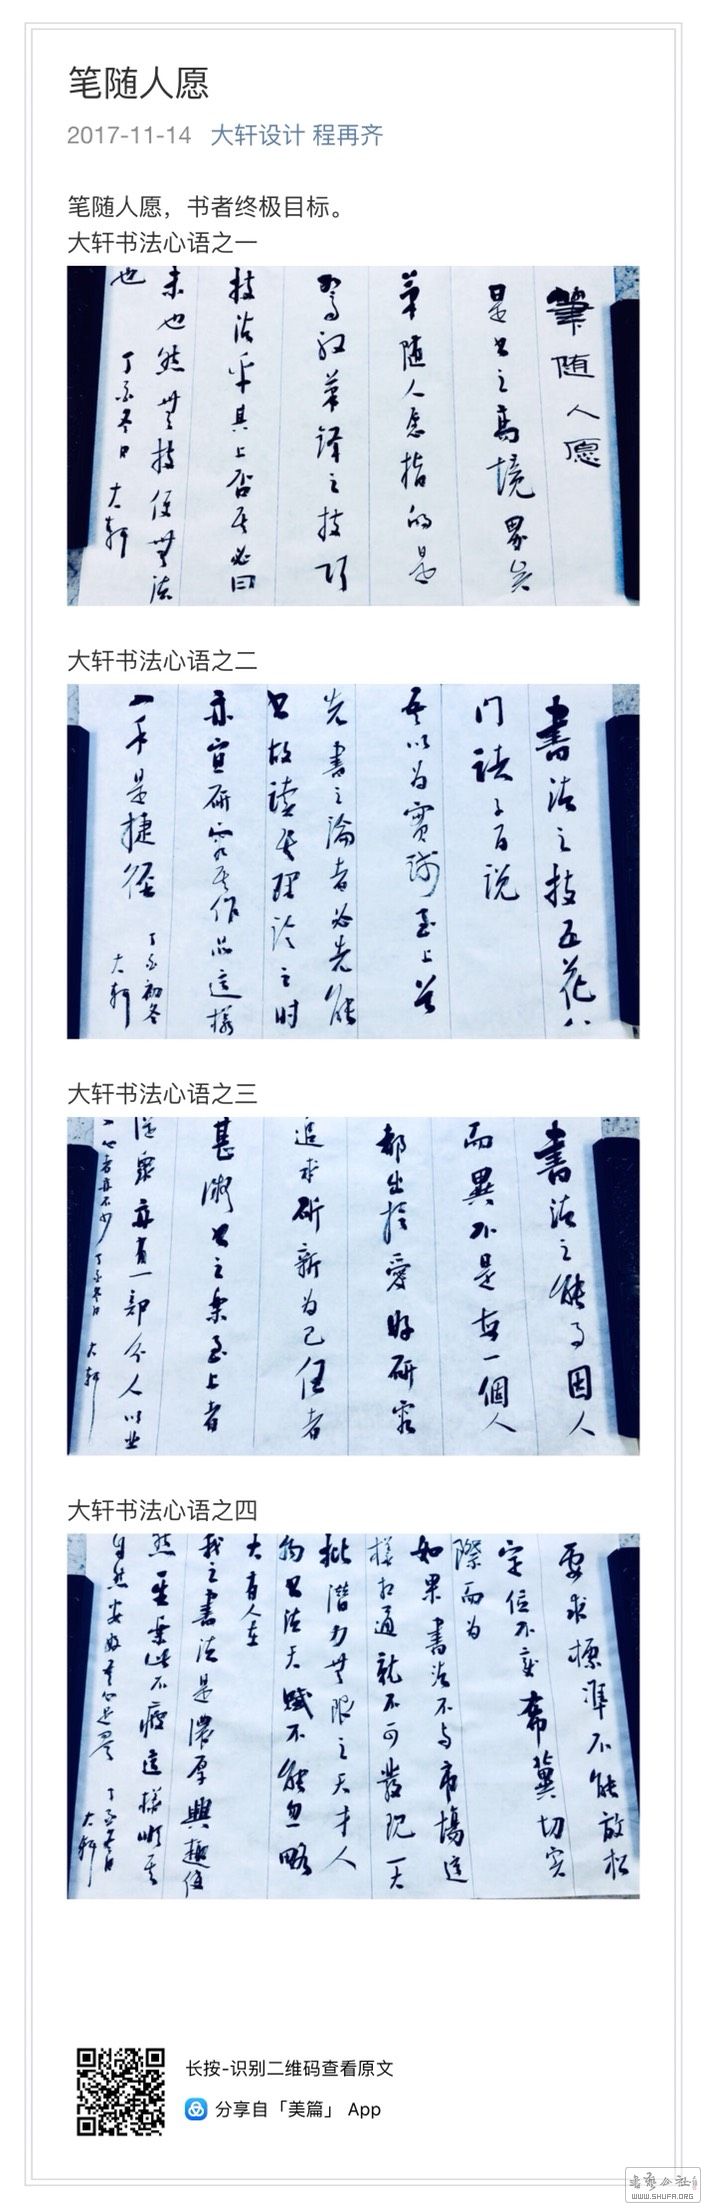 笔随人愿
2017-11-14 大轩设计 程再齐
笔随人愿，书者终极目标。
大轩书法心语之一
筆随人愿
是书之高境界矣
筆随人愿指的是
驾驭筆锋之技巧
技法乎其上否吾必曰
未也然無技便無法
也
丁酉冬日
大軒
大轩书法心语之二
書法之技五花八
门諸子百说
吾以为實践至上若
先書之論者必先能
书故读其理论之时
亦宜研究其作品這樣
一手是捷徑
丁酉初冬
大軒
大轩书法心语之三
書法之能事因人
而異不是每一個人
都出於愛好研究
追求斫新为己任者
甚微书之樂至上者
從眾亦有一部分人以业
者亦不少
丁酉冬日
大軒
大轩书法心语之四
要求標準不能放松
定位不变希冀切实
際而为
如果書法不与市場這
樣相通就不可發现一大
批潛力無限之天才人
物书法天賦不能忽略
大有人在
我之書法是濃厚興趣使
然至樂此不疲這樣順其
自然
丁酉冬日
大軒
长按-识别二维码查看原文
分享自「美篇」 App
书艺公社
WWW.SHUFA.ORG